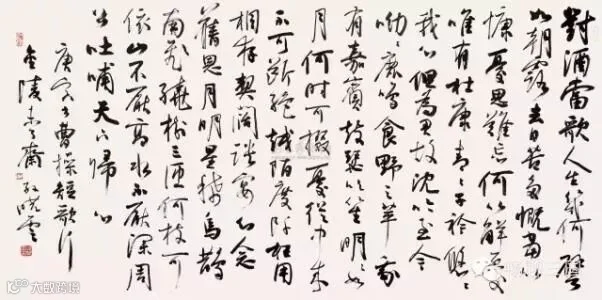 對酒當歌人生幾何譬
如朝露去日苦多慨當
慷憂思難忘何以解憂
唯有杜康青青子衿悠悠
我心但為君故沈吟至今
呦呦鹿鳴食野之苹我
有嘉賓鼓瑟吹笙明明如
月何時可掇憂從中來
不可斷絕越陌度阡枉用
相存契闊談宴心念
舊恩月明星稀烏鵲
南飛繞樹三匝何枝可
依山不厭高水不厭深周
公吐哺天下歸心
庚寅冬曹操短歌行
金陵未了齋孫曉雲
大数跨境